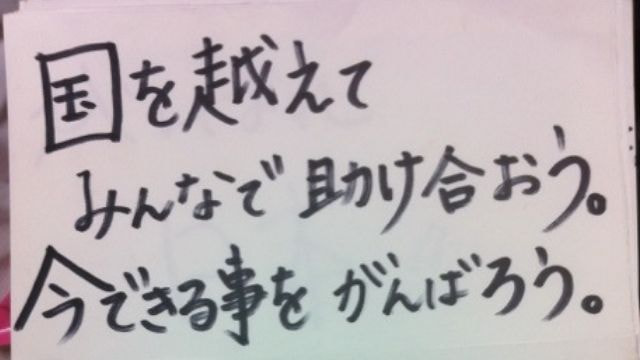 国を越えて
みんなで助け合おう。
今できる事をがんばろう。